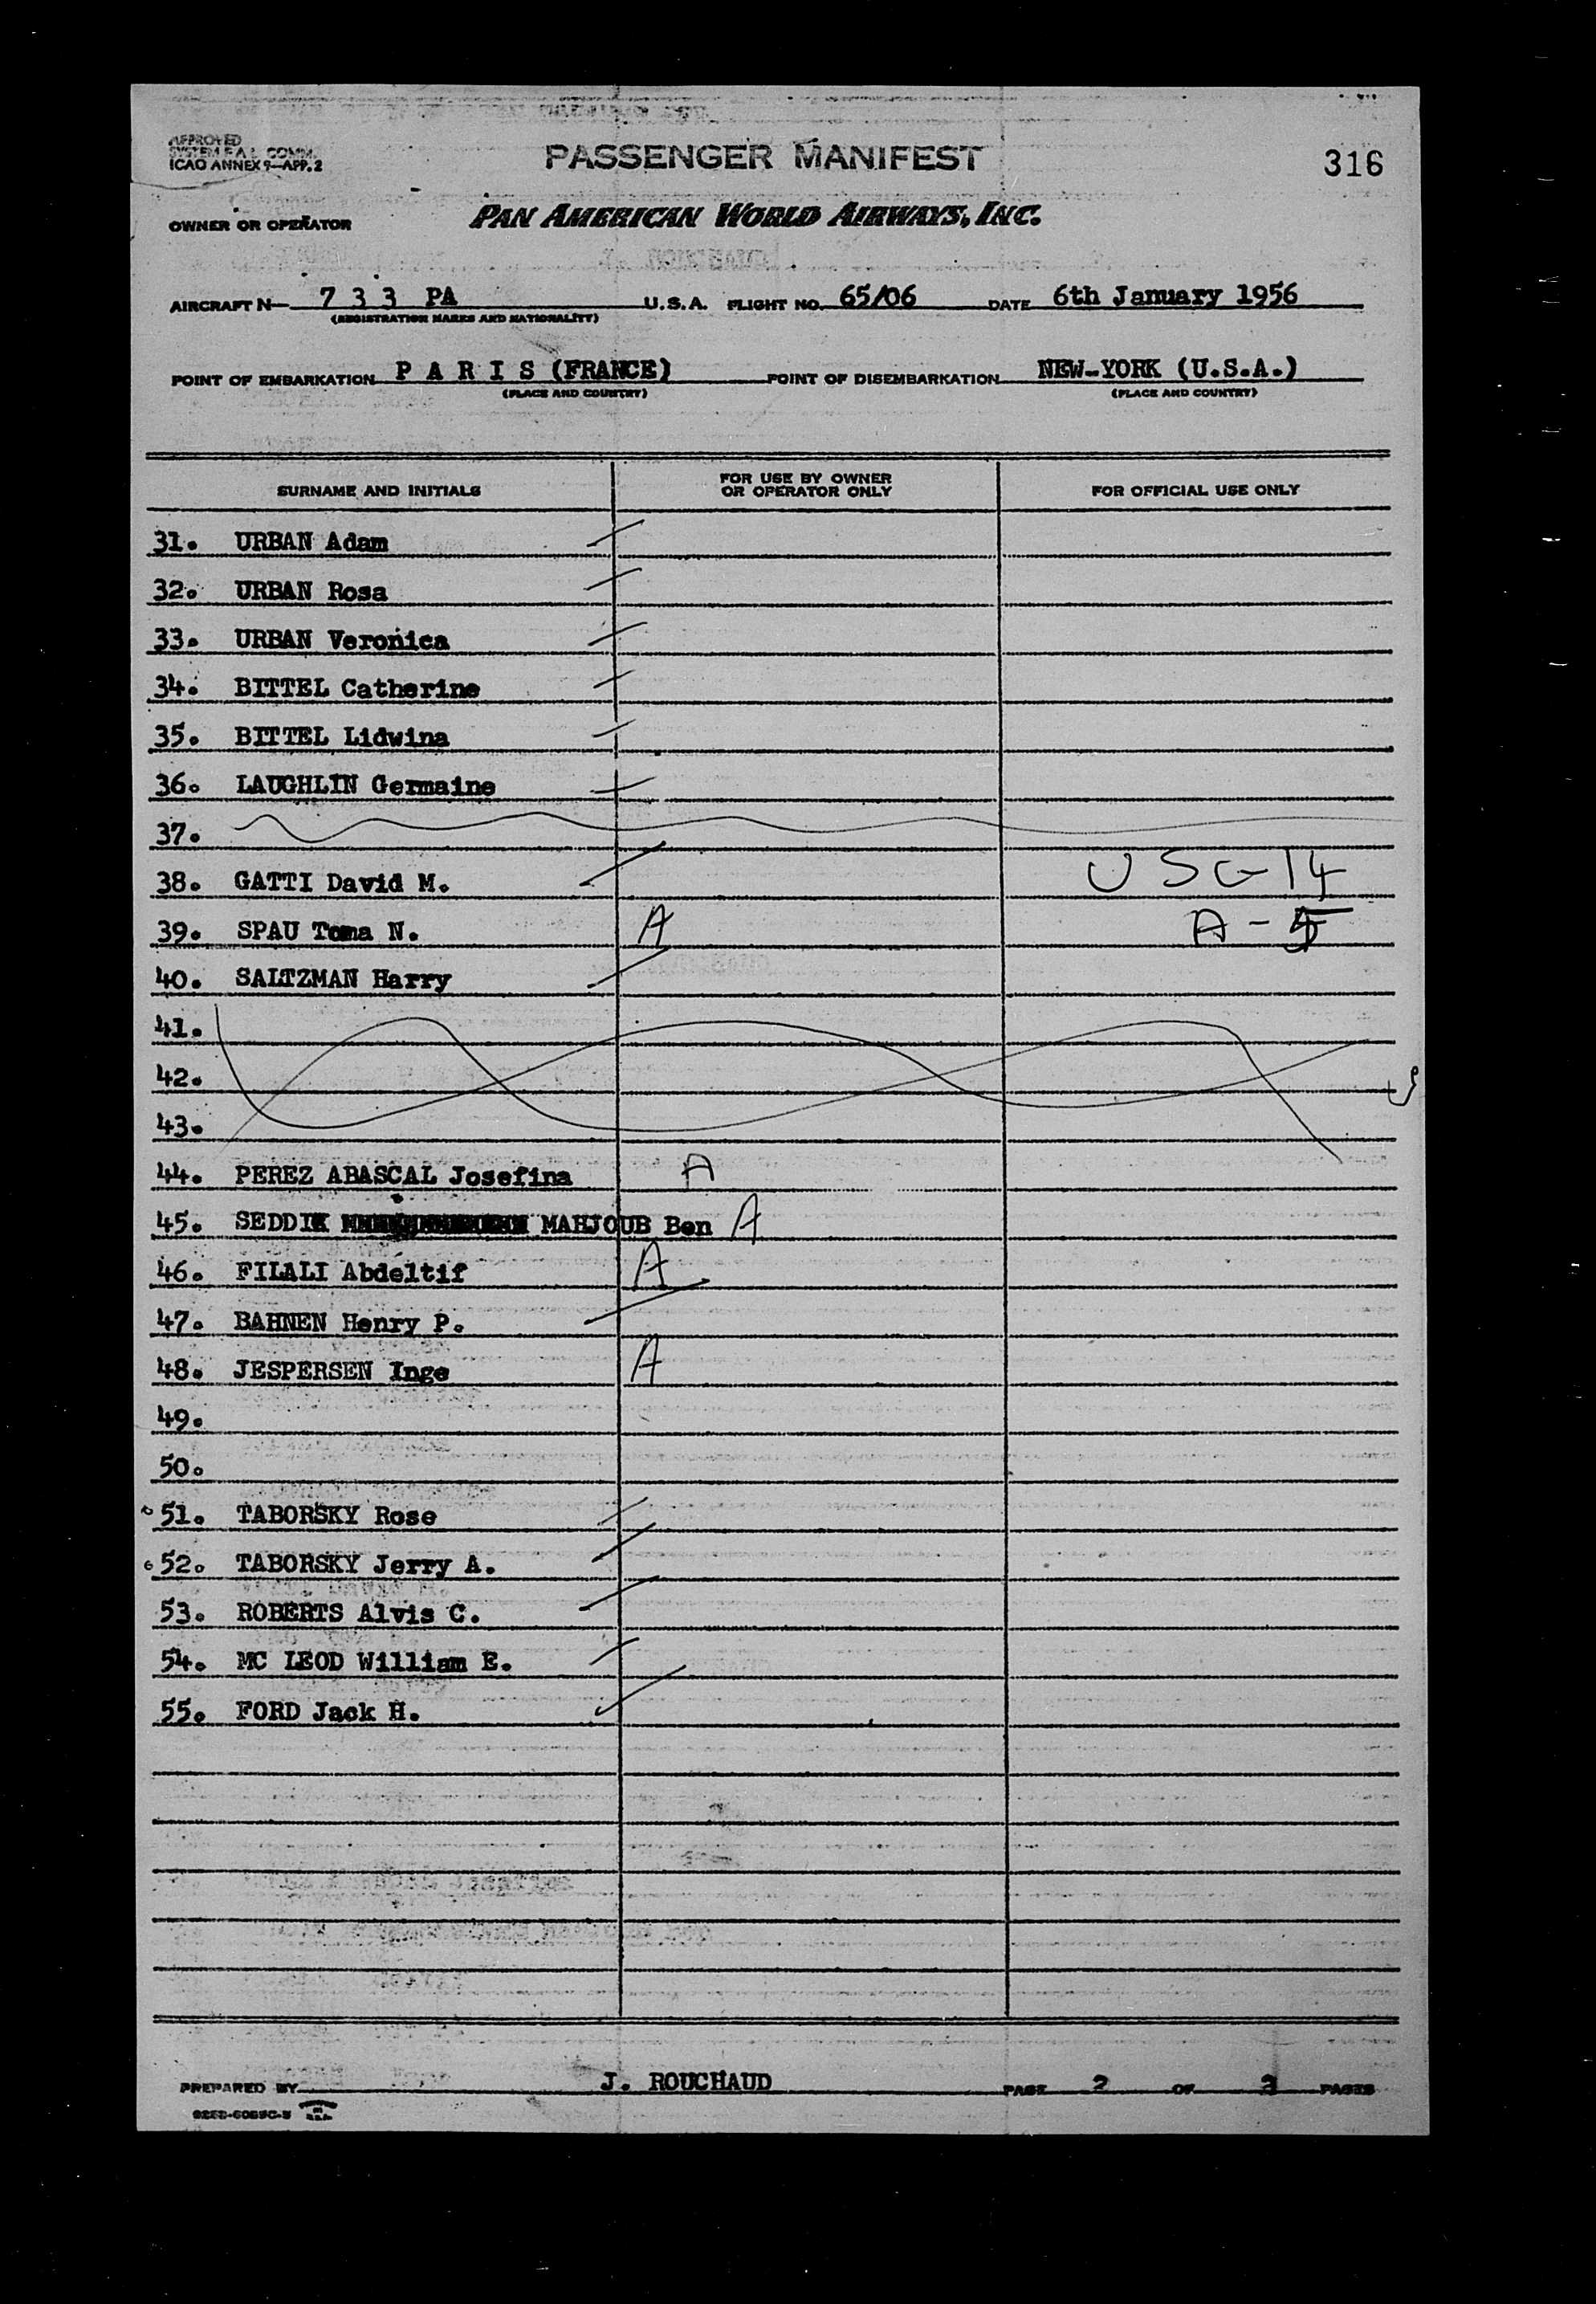 APPROVED
SYSTEM F.A.L. COMM.
ICAO ANNEX 9—APP. 2
PASSENGER MANIFEST
316
OWNER OR OPERATOR PAN AMERICAN WORLD AIRWAYS, INC.
AIRCRAFT N— 7 3 3 PA U.S.A. FLIGHT NO. 65/06 DATE 6th January 1956
(REGISTRATION MARKS AND NATIONALITY)
POINT OF EMBARKATION P A R I S (FRANCE) POINT OF DISEMBARKATION NEW-YORK (U.S.A.)
(PLACE AND COUNTRY) (PLACE AND COUNTRY)
SURNAME AND INITIALS FOR USE BY OWNER OR OPERATOR ONLY FOR OFFICIAL USE ONLY
31. URBAN Adam
32. URBAN Rosa
33. URBAN Veronica
34. BITTEL Catherine
35. BITTEL Lidwina
36. LAUGHLIN Germaine
37.
38. GATTI David M. USC-14
39. SPAU Toma N. A A-5
40. SALTZMAN Harry
41.
42.
43.
44. PEREZ ABASCAL Josefina A
45. SEDDIK MAHJOUB Ben A
46. FILALI Abdeltif A
47. BAHNEN Henry P.
48. JESPERSEN Inge A
49.
50.
51. TABORSKY Rose
52. TABORSKY Jerry A.
53. ROBERTS Alvis C.
54. MC LEOD William E.
55. FORD Jack H.
PREPARED BY J. ROUCHAUD PAGE 2 OF 3 PAGES